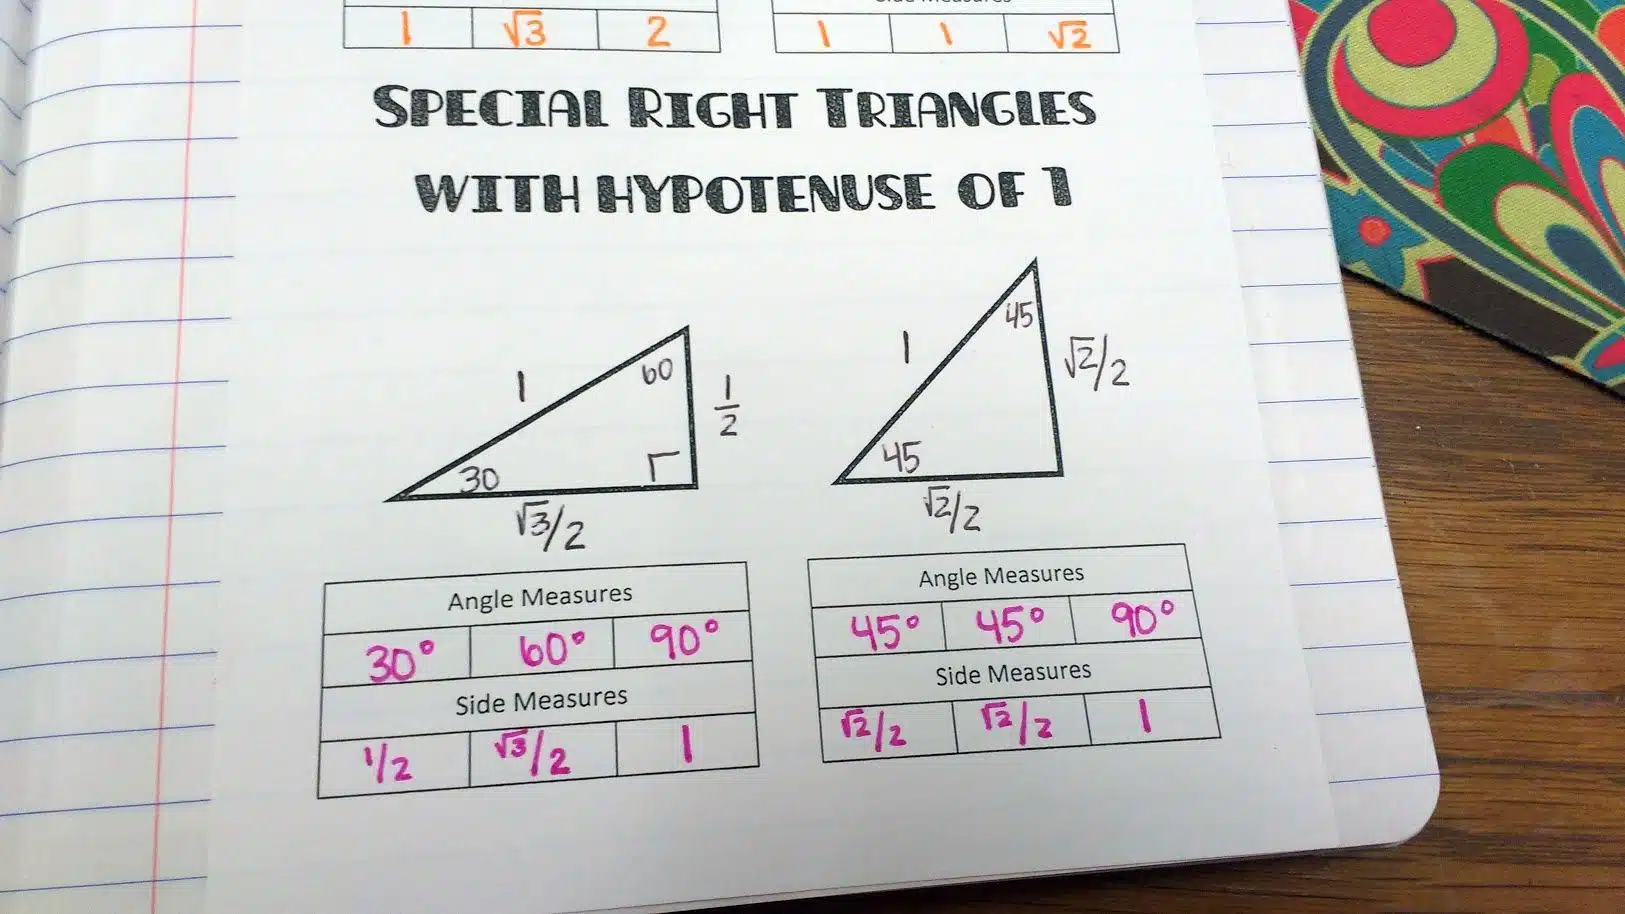 1 √3 2
Side Measures
1 1 √2
SPECIAL RIGHT TRIANGLES
WITH HYPOTENUSE OF 1
1
60
1/2
30
√3/2
1
45
√2/2
45
√2/2
Angle Measures
30° 60° 90°
Side Measures
1/2 √3/2 1
Angle Measures
45° 45° 90°
Side Measures
√2/2 √2/2 1